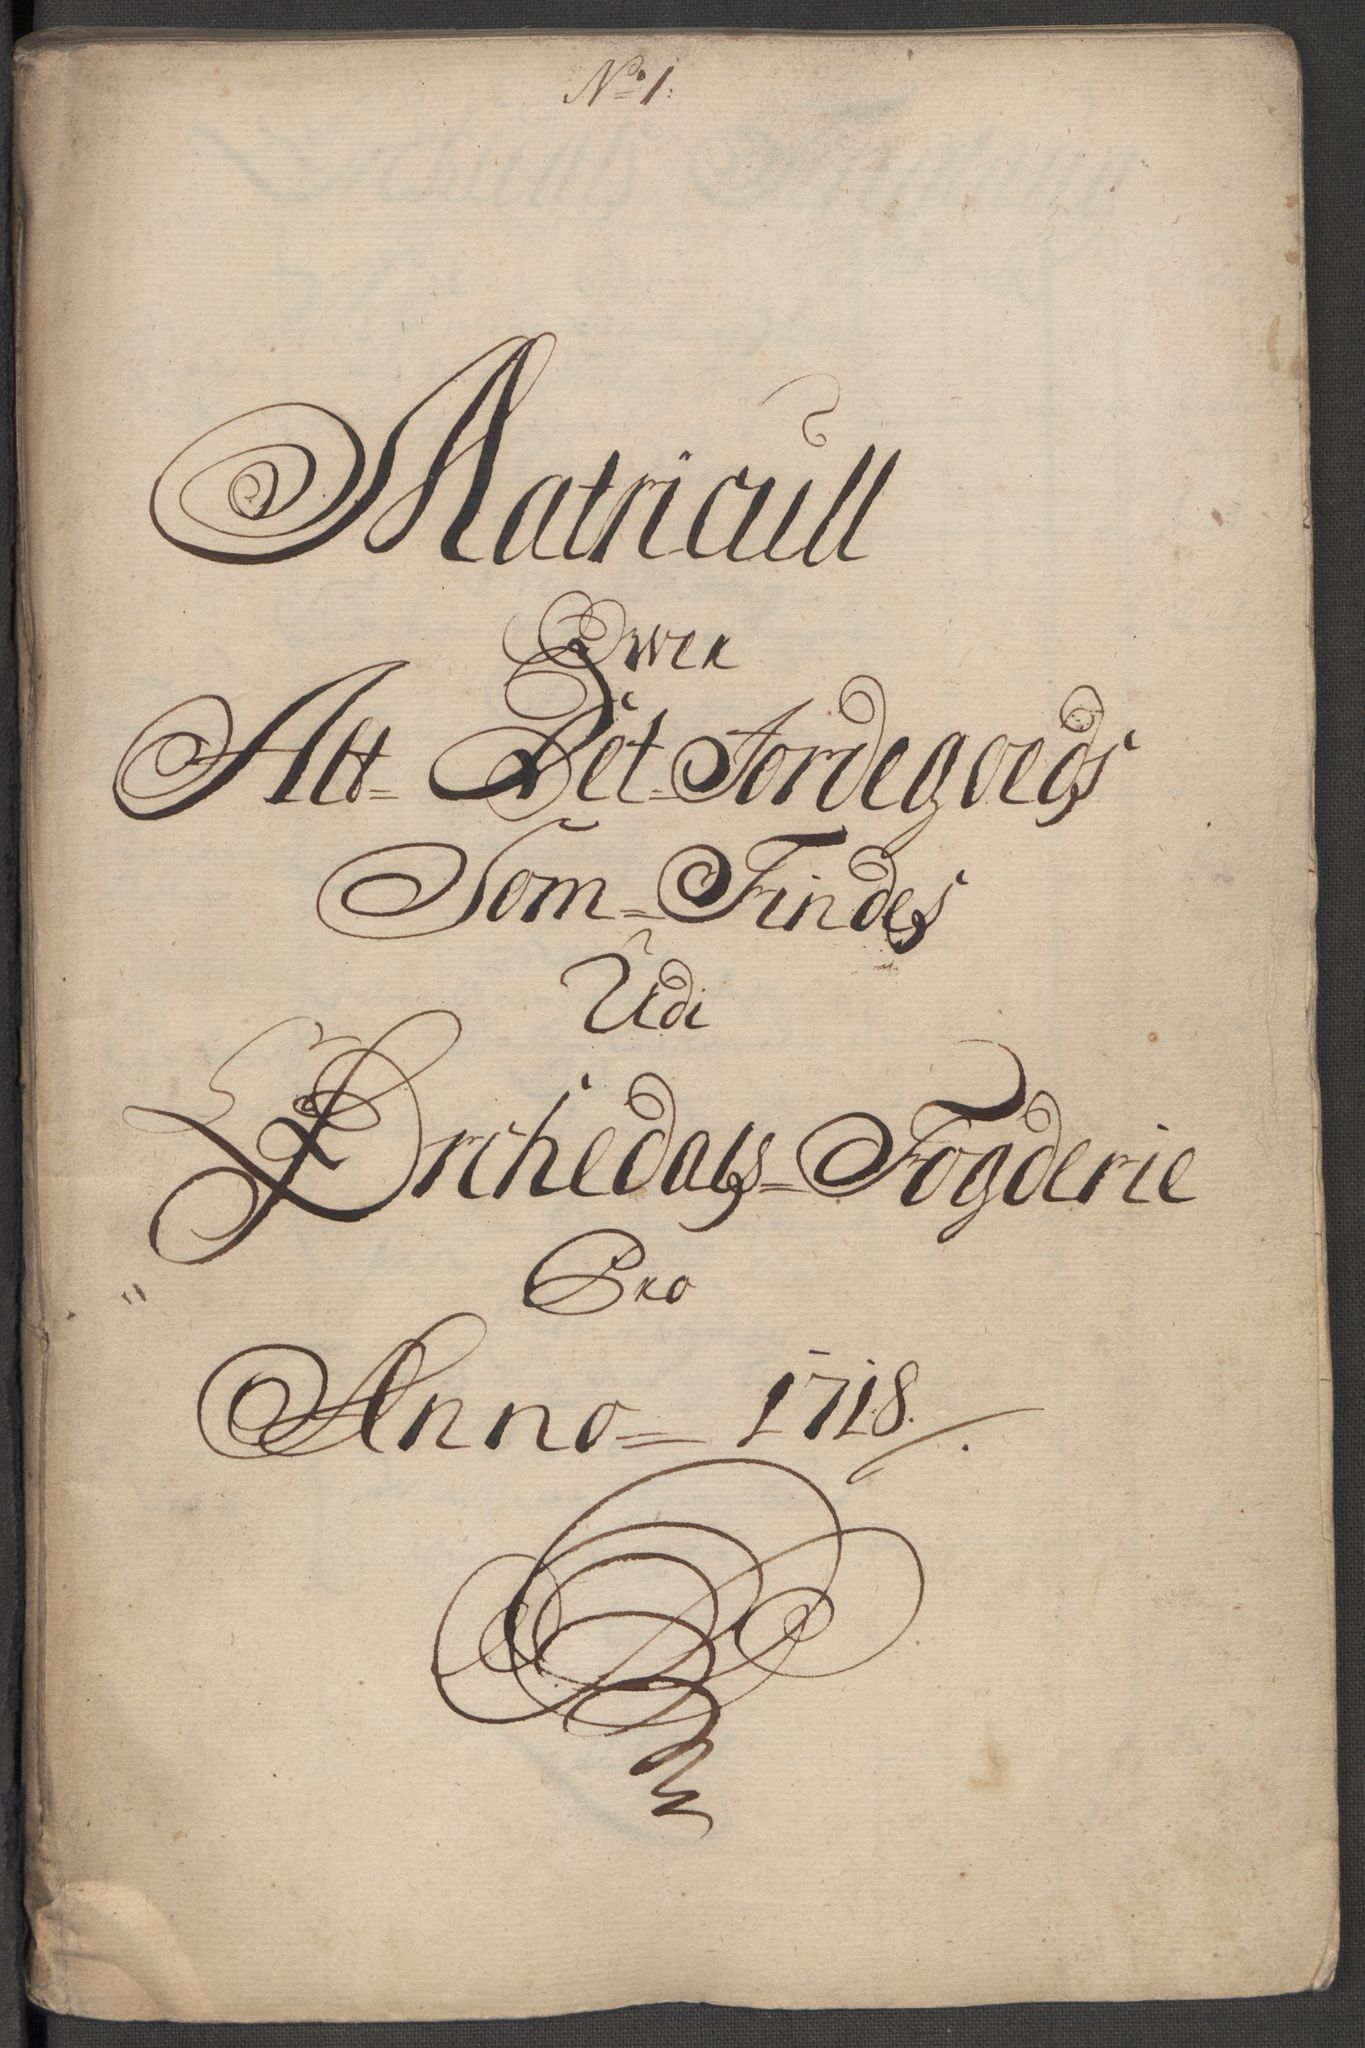 No 1.
Matricull
Ower
Alt Det Jordegoeds
Som Findes
Udi
Orchedals Fogderie
Pro
Anno 1718.